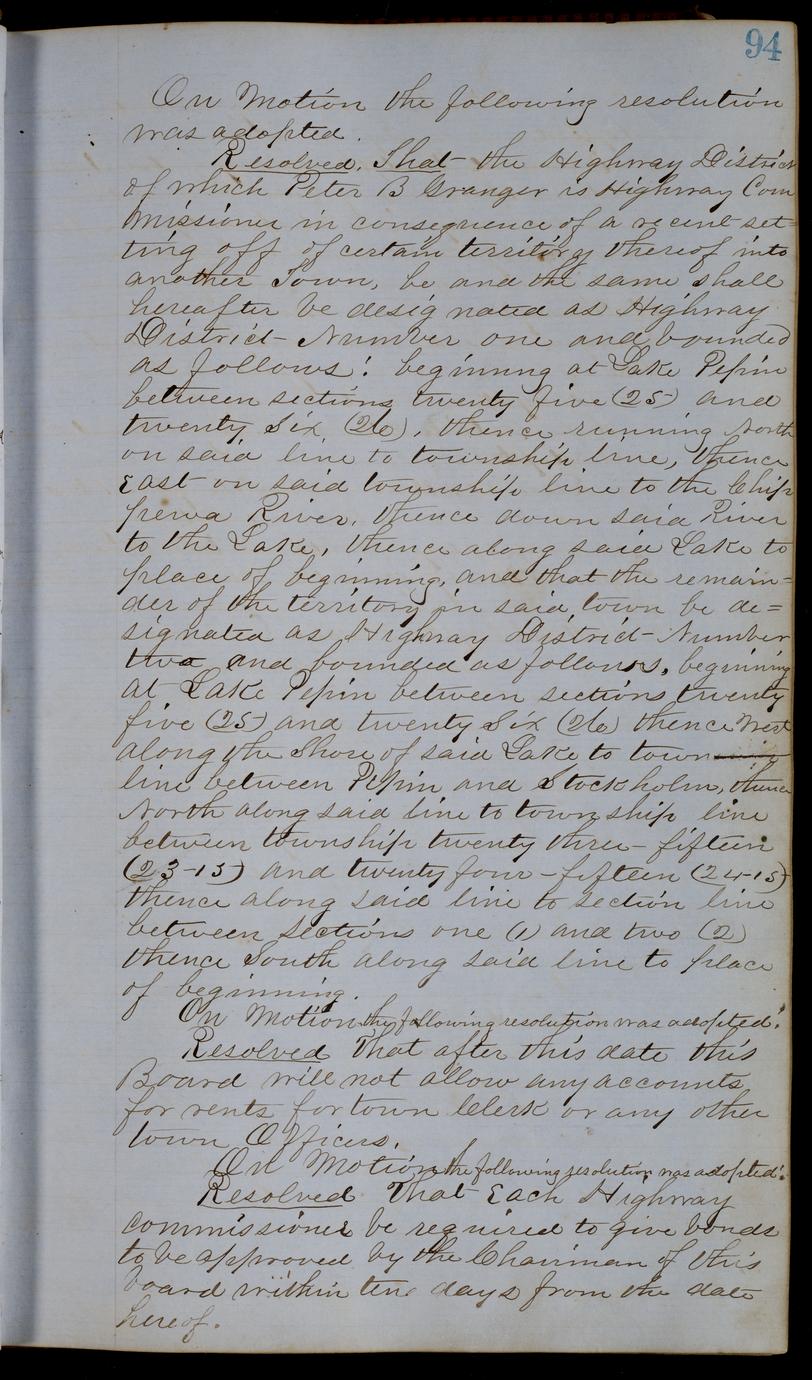 94
On Motion the following resolution
was adopted.
Resolved. That the Highway District
of which Peter B Granger is Highway Com
missioner in consequence of a recent set=
ting off of certain territory thereof into
another Town, be and the same shall
hereafter be designated as Highway
District Number one and bounded
as follows: beginning at Lake Pepin
between sections twenty five (25) and
twenty Six (26), thence running North
on said line to township line, thence
East on said township line to the Chip
pewa River, thence down said River
to the Lake, thence along said Lake to
place of beginning, and that the remain=
der of the territory in said town be de=
signated as Highway District Number
two and bounded as follows, beginning
at Lake Pepin between sections twenty
five (25) and twenty Six (26) thence West
along the Shore of said Lake to town
line between Pepin and Stockholm, thence
North along said line to township line
between township twenty three-fifteen
(23-15) and twenty four-fifteen (24-15)
thence along said line to section line
between Sections one (1) and two (2)
thence South along said line to place
of beginning.
On Motion the following resolution was adopted:
Resolved That after this date this
Board will not allow any accounts
for rents for town Clerk or any other
town Officers.
On Motion the following resolution was adopted:
Resolved That Each Highway
commissioner be required to give bonds
to be approved by the Chairman of this
board within ten days from the date
hereof.